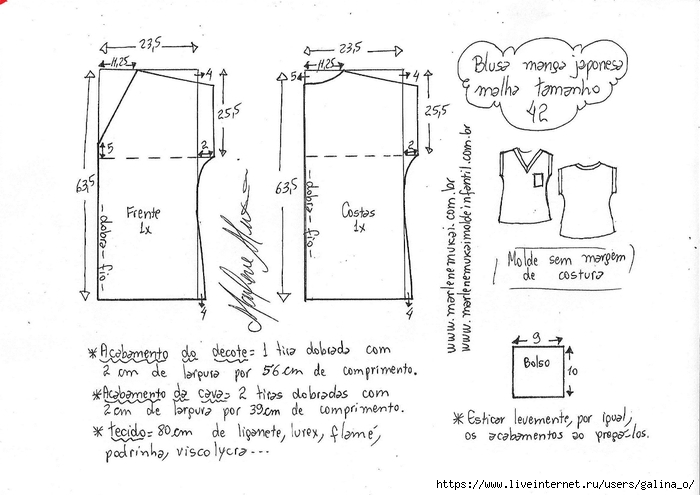 23,5
11,25
4
5
25,5
2
63,5
Frente
1x
- dobra - fio -
4
23,5
11,25
4
5
25,5
2
63,5
Costas
1x
- dobra - fio -
4
Blusa manga japonesa
malha tamanho
42
www.marlenemukai.com.br
www.marlenemukaimoldeinfantil.com.br
Molde sem margem
de costura
9
Bolso
10
* Acabamento do decote = 1 tira dobrada com
2 cm de largura por 56 cm de comprimento.
* Acabamento da cava = 2 tiras dobradas com
2 cm de largura por 39 cm de comprimento.
* tecido = 80 cm de liganete, lurex, flamê,
podrinha, viscolycra ...
* Esticar levemente, por igual,
os acabamentos ao pregá-los.
https://www.liveinternet.ru/users/galina_o/